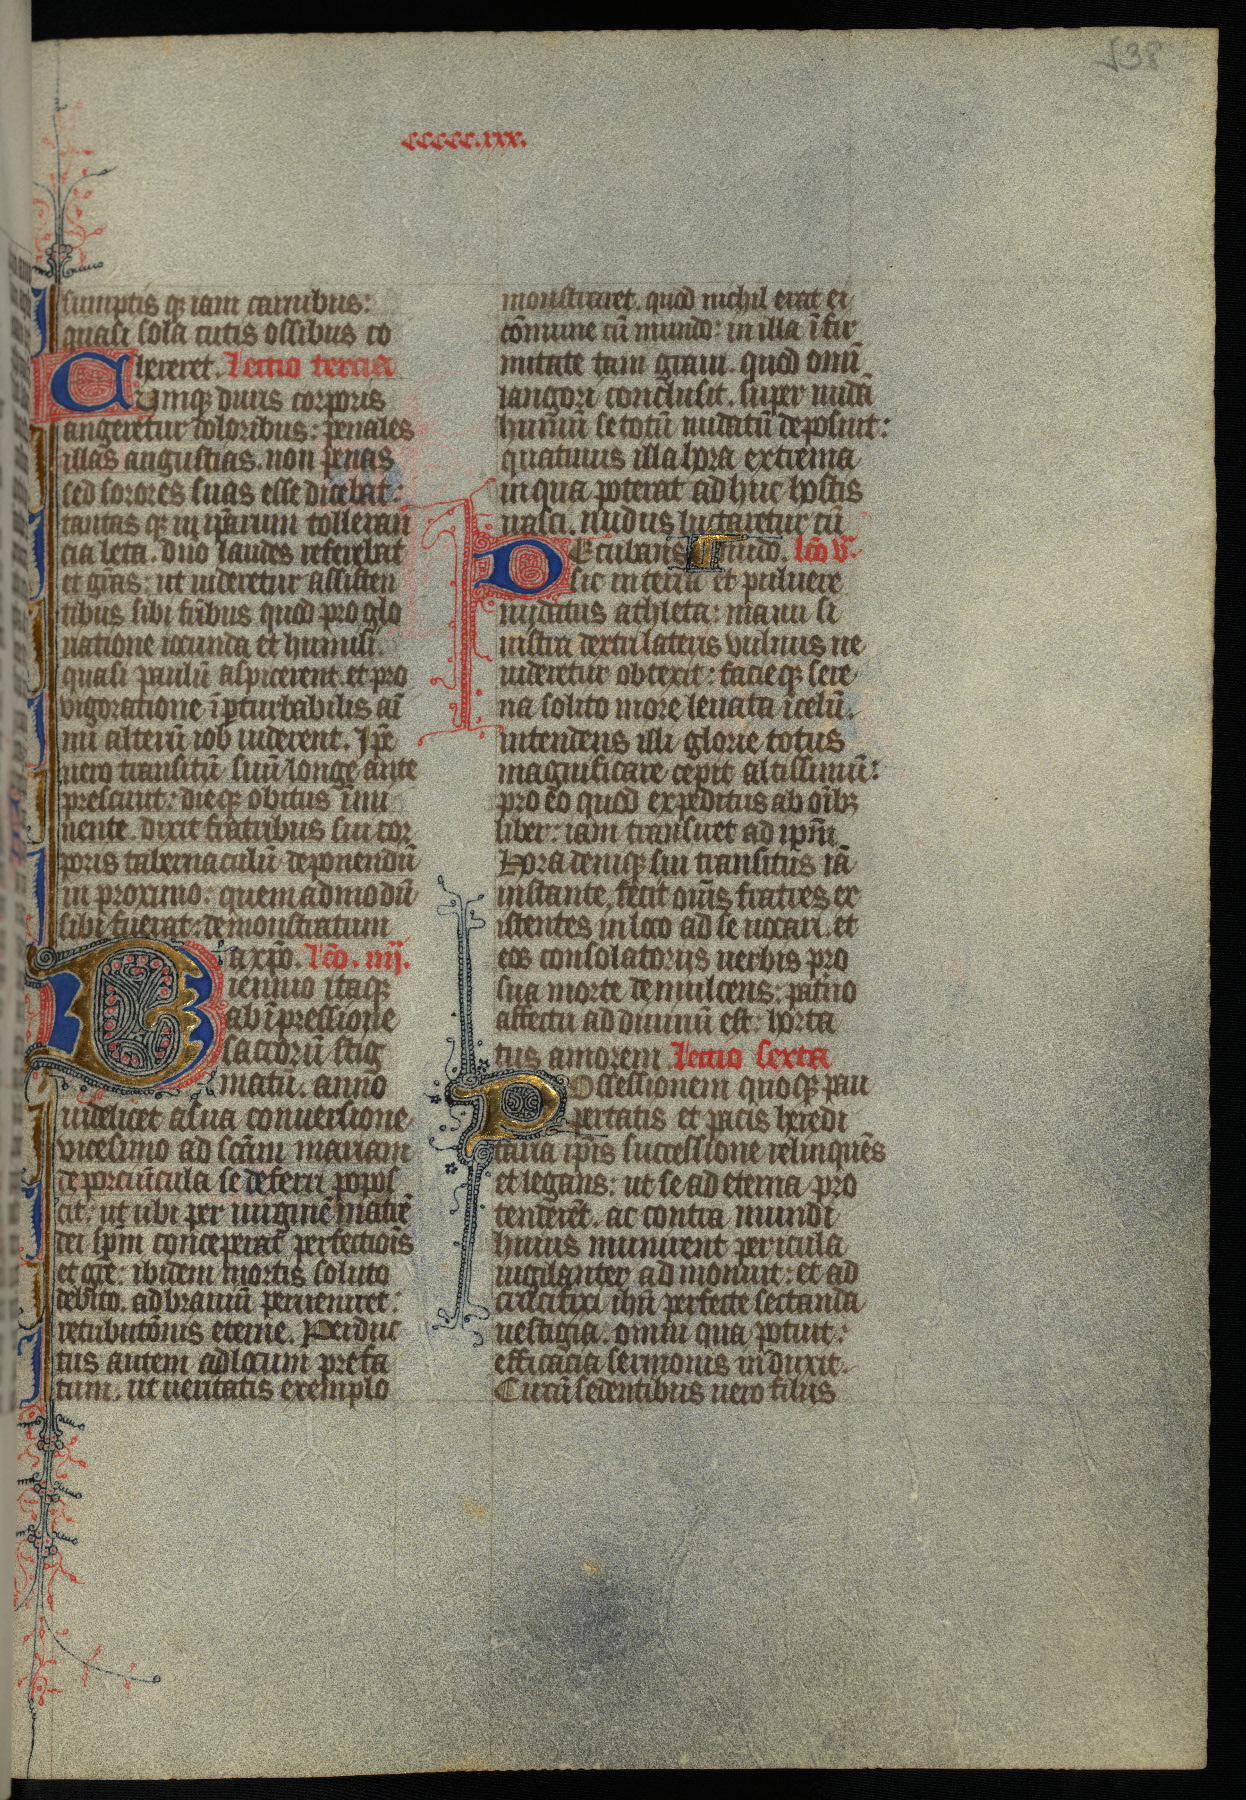 538
ccccc.xxx.
sumptis q̷ iam carnibus:
quasi sola cutis ossibus co
hereret. Lectio tercia
Cumq̷ duris corporis
angeretur doloribus: penales
illas angustias. non penas
sed sorores suas esse dicebat:
tantas q̷ in ip̄arum tolleran
cia leta. dn̄o laudes referebat
et gr̄as: ut uideretur assisten
tibus sibi fr̄ibus quod pro glo
riatione iocunda et humili.
quasi paulū aspicerent. et pro
vigoratione īperturbabilis ai
mi alterū iob uiderent. Ip̄e
uero transitū suū longe ante
presciuit: dieq̷ obitus īmi
nente. dixit fratribus sui cor
poris tabernaculū deponendū
in proximo: quemadmodū
sibi fuerat: demonstratum
a xp̄o. Lc̄o. iiij.
Biennio itaq̷
ab īpressione
sacrorū stig
matū. anno
uidelicet a sua conuersione
vicesimo ad sc̄am mariam
de porciūcula se deferri popos
cit: ut ubi per uirginē matrē
dei sp̄m conceperat perfectiois
et gr̄e: ibidem mortis soluto
debito. ad brauiū perueniret:
retributōnis eterne. Perduc
tus autem ad locum prefa
tum. ut ueritatis exemplo
monstraret. quod nichil erat ei
cōmune cū mundo: in illa ī fir
mitate tam graui. quod omī
langori conclusit. super nudā
humū se totū nudatū deposuit:
quatinus illa hora extrema
in qua poterat ad huc hostis
irasci. nudus luctaretur cū
nudo. lc̄o v.
Recubans
sic in terra et puluere
nudatus athleta: manu si
nistra dextri lateris vulnus ne
uideretur obtexit: facieq̷ sere
na solito more leuata ī celū.
intendens illi glorie totus
magnificare cepit altissimū:
pro eo quod expeditus ab oīb̷
liber: iam transiret ad ip̄m
Hora deniq̷ sui transitus iā
instante. fecit omīs fratres ex
istentes in loco ad se uocari. et
eos consolatoriis uerbis pro
sua morte demulcens: patrio
affectu ad diuinū est: horta
tus amorem Lectio sexta
Possessionem quoq̷ pau
pertatis et pacis heredi
taria ip̄is successione relinquēs
et legans: ut se ad eterna pro
tenderēt. ac contra mundi
huius munirent pericula
uigilanter ad monuit: et ad
crucifixi ih̄u perfecte sectanda
uestigia. omni qua potuit:
efficacia sermonis induxit.
Circūsedentibus uero filiis